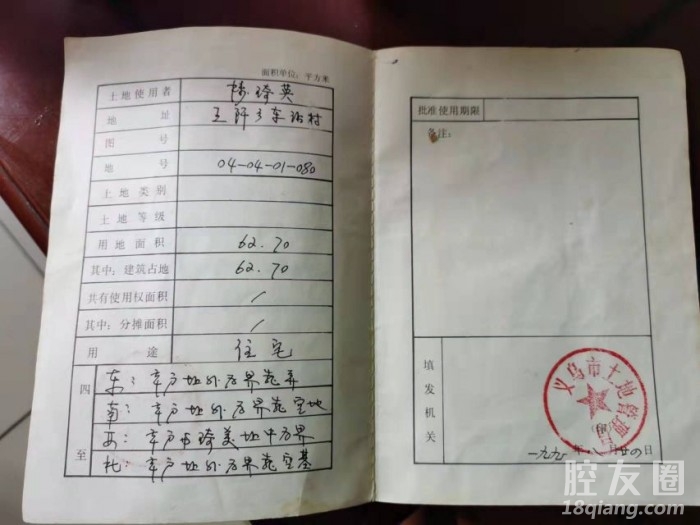 面积单位：平方米
土地使用者 琦英
地 址 王阡乡东 村
图 号
地 号 04-04-01-080
土地类别
土地等级
用地面积 62.70
其中：建筑占地 62.70
共有使用权面积 /
其中：分摊面积 /
用 途 住宅
四至
东：本户址外为界靠弄
南：本户址外为界靠空地
西：本户与 琦美址中为界
北：本户址外为界靠空基
批准使用期限
备注：
填发机关
义乌市土地管理局
(印)
一九九 年八月廿四日
腔友圈
18qiang.com